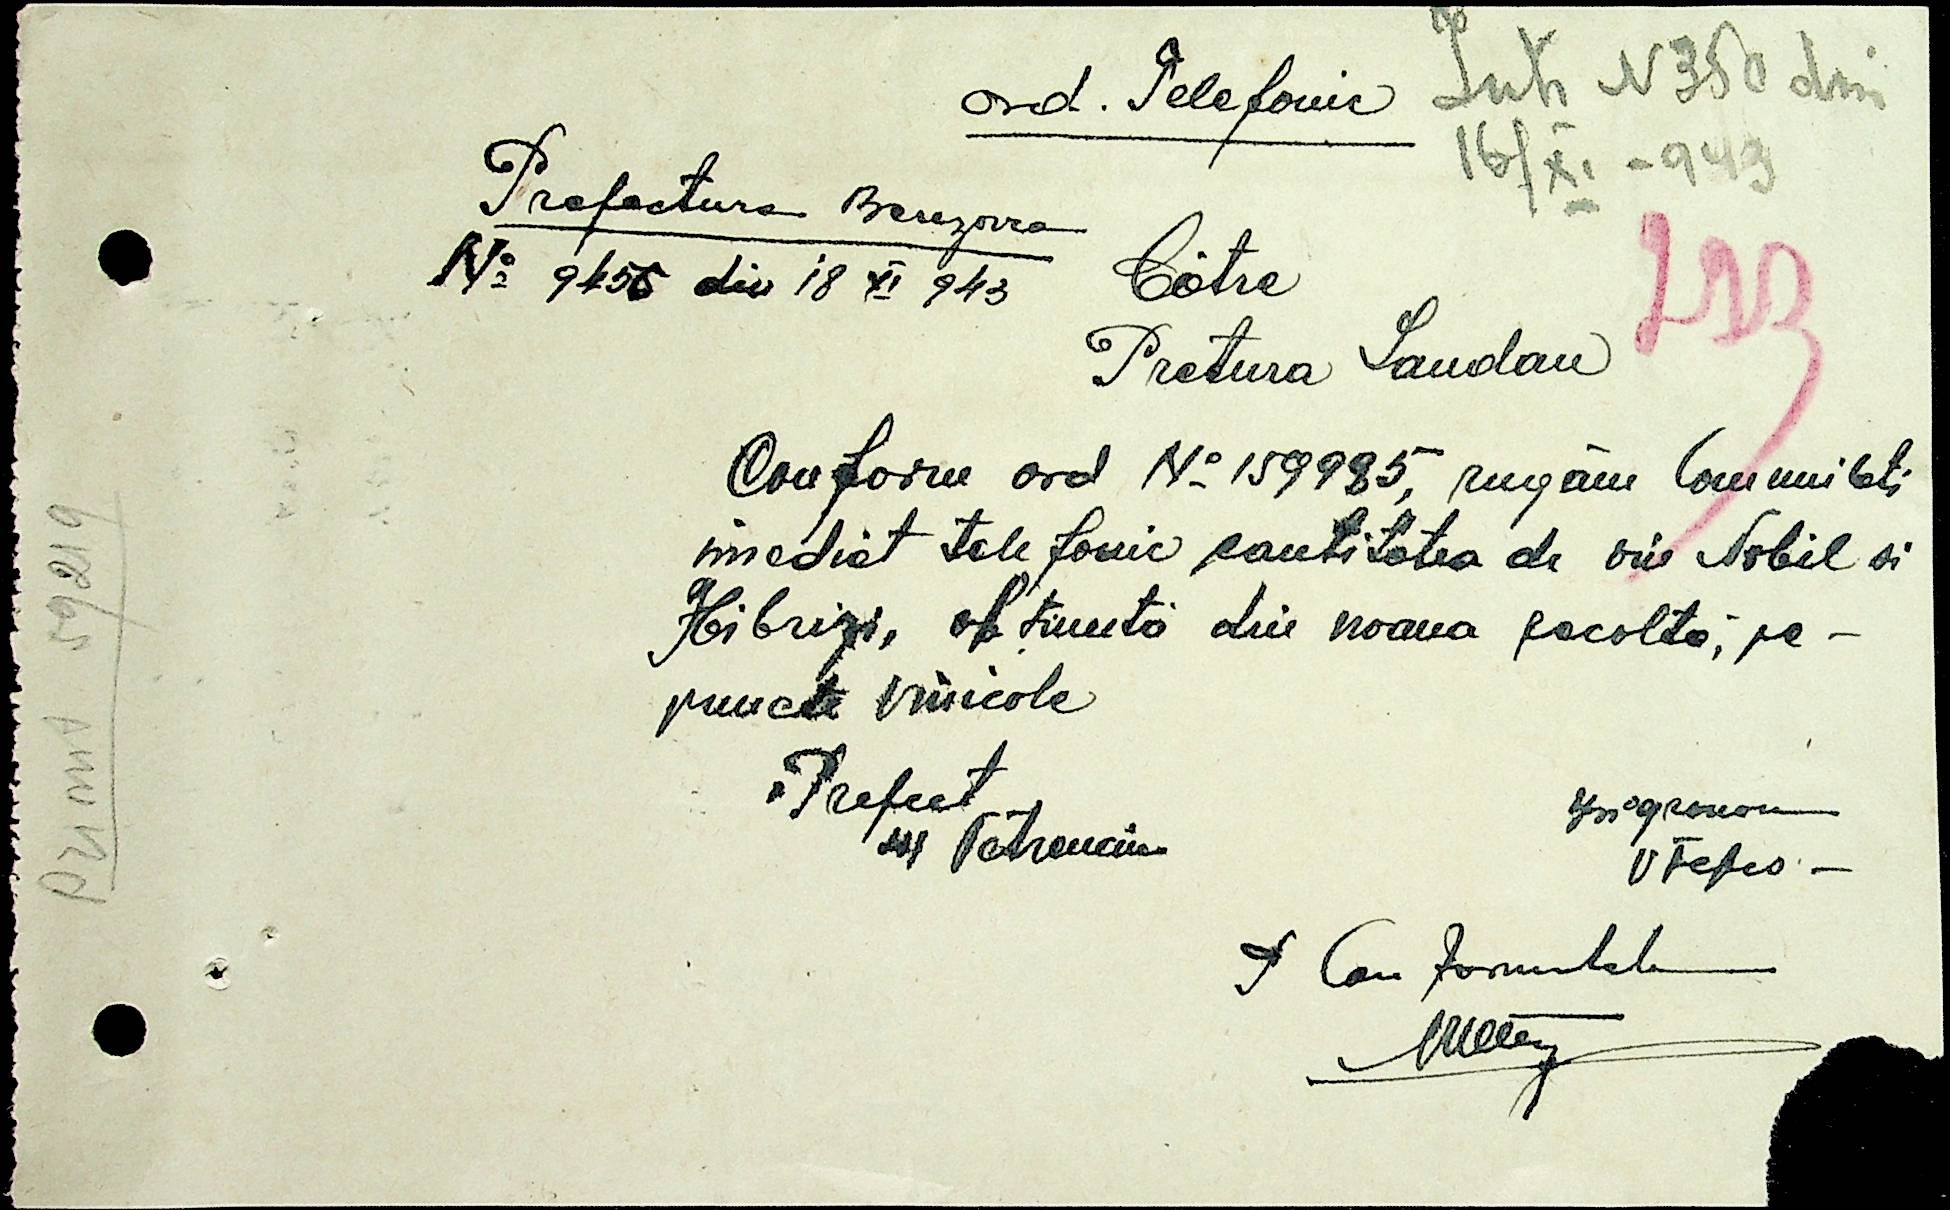 ord. Telefonic
Intr N 350 din
16/XI - 943
Prefectura Berezovca
No 9456 din 18 XI 943
Cãtre
Pretura Landau
Conform ord No 159985, rugãm Comunicati
imediat telefonic cantitatea de vin Nobil si
Hibrizi, obtinutã din noaua recoltã, pe -
puncte Vinicole
Prefect
Pãtrenciu
Ing agronom
V Tepes -
P Conformitate
Primit 59219